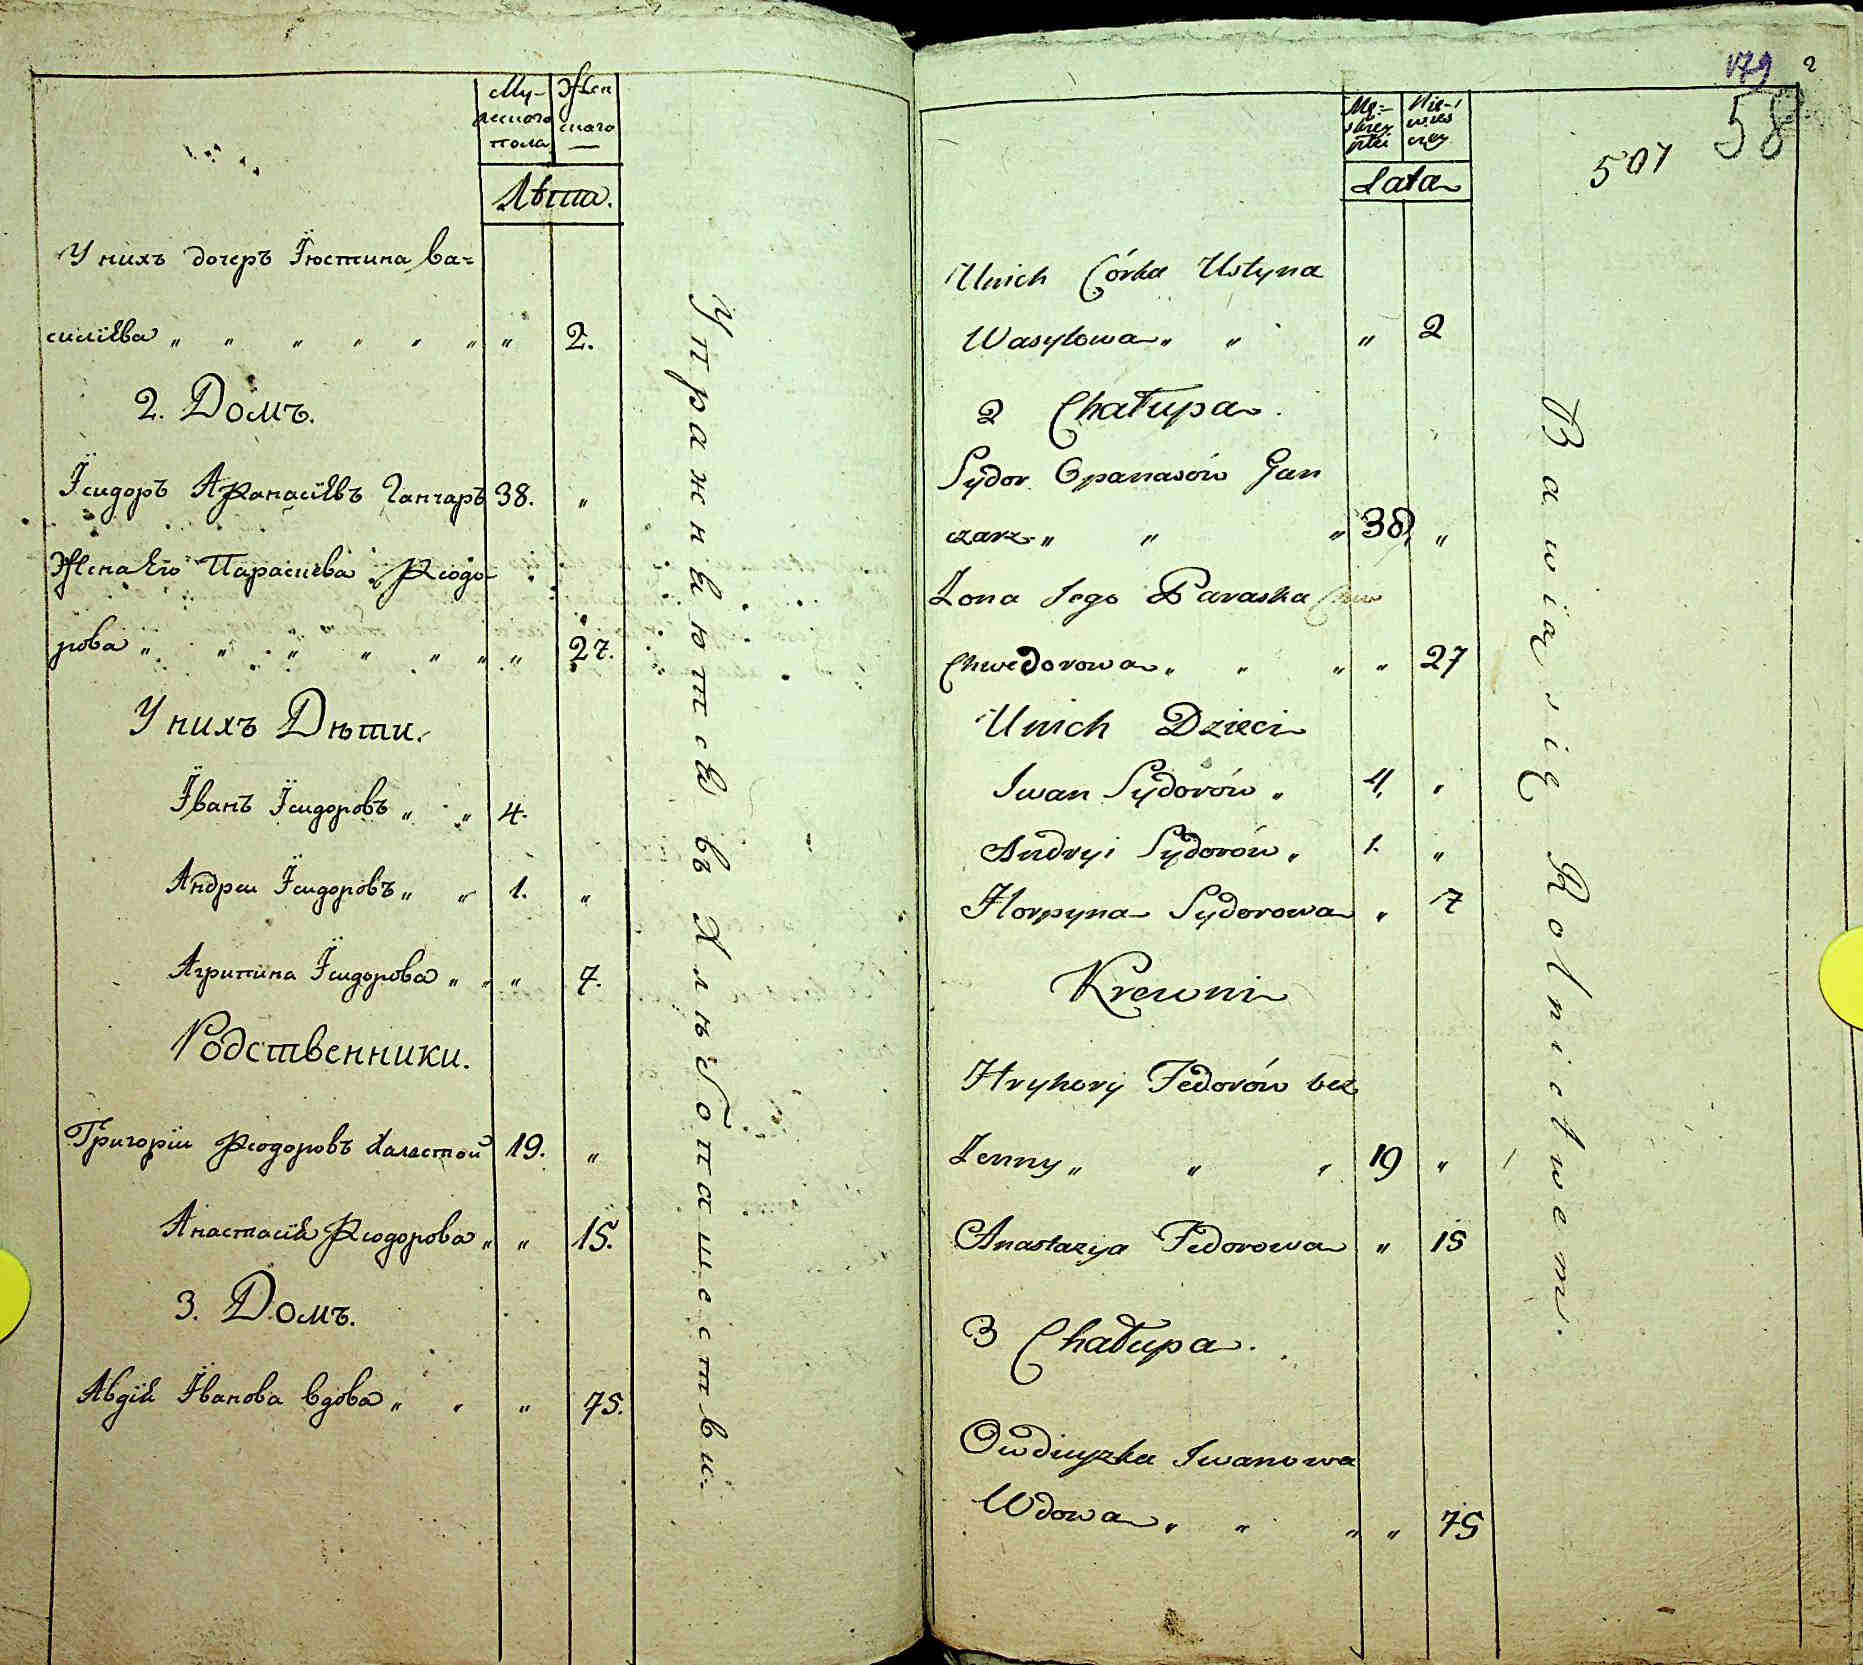 Му-
жескаго
пола
Жен
скаго
Лѣта.
У нихъ дочеръ Їюстина Ва=
силїева „ „ „ „ „ „ „ 2.
2. Домъ.
Їсидоръ Афанасїевъ Ганчаръ 38. „
Жена Его Параскева Ѳеодо-
рова „ „ „ „ „ „ „ 27.
У нихъ Дѣти.
Їванъ Їсидоровъ „ „ 4.
Андреи Їсидоровъ „ „ 1. „
Агрипина Їсидорова „ „ „ 7.
Родственники.
Григорїи Ѳеодоровъ Халастой 19. „
Анастасїя Ѳеодорова „ „ 15.
3. Домъ.
Авдїя Їванова вдова „ „ „ 75.
Упражняются въ Хлѣбопашествѣ.
179 2
58
507
Mę=
skiey
płci
Nie-
wies
ciey
Lata
Unich Córka Ustyna
Wasylowa „ „ „ 2
2 Chałupa.
Sydor Opanasów Gan
czarz „ „ „ 38. „
Zona Jego Paraska
Chwedorowa „ „ „ „ 27
Unich Dzieci
Iwan Sydorów „ 4. „
Andryi Sydorów „ 1. „
Horpyna Sydorowa „ 7
Krewni
Hryhory Fedorów bez
Zenny „ „ „ 19 „
Anastazya Fedorowa „ 15
3 Chałupa.
Owdiuszka Iwanowa
Wdowa „ „ „ „ 75
Bawią się Rolnictwem.